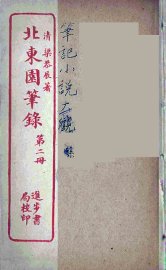 清 梁恭辰著
北東園筆錄 第二冊
進步書局校印
筆記小説大觀